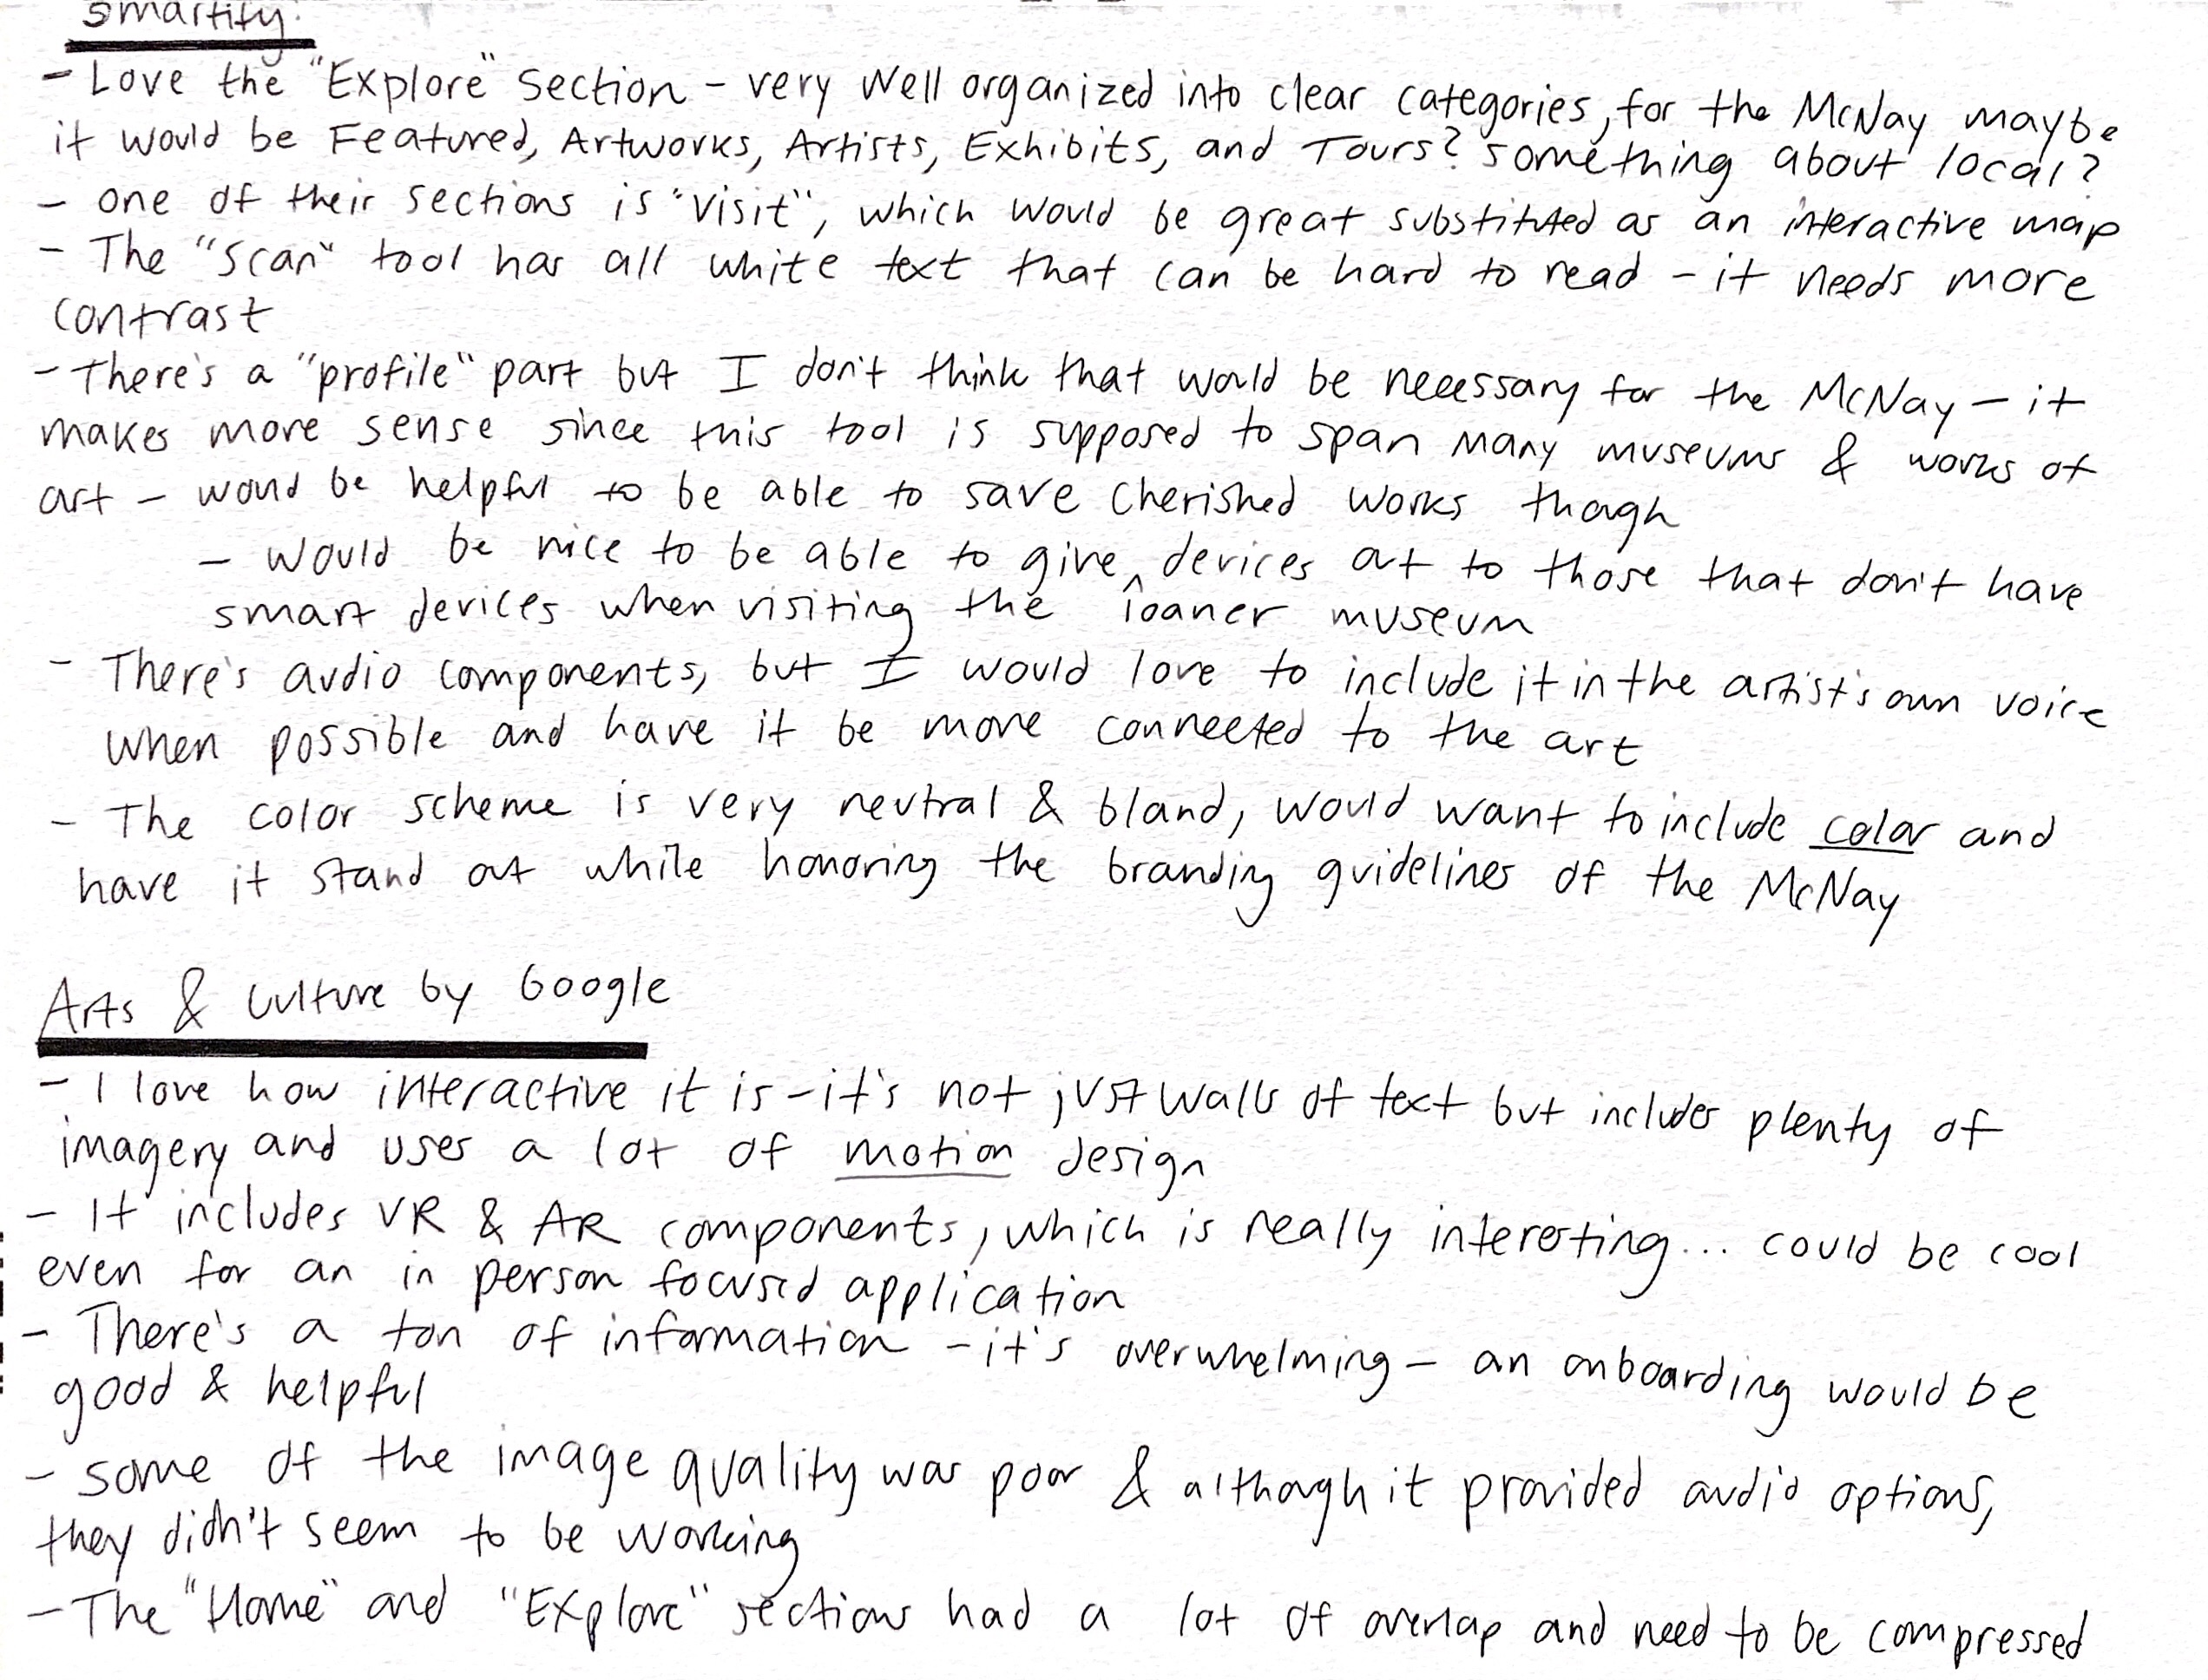 Smartify:
- Love the "Explore" section - very well organized into clear categories, for the McNay maybe
it would be Featured, Artworks, Artists, Exhibits, and Tours? something about local?
- one of their sections is "visit", which would be great substituted as an interactive map
- The "scan" tool has all white text that can be hard to read - it needs more
contrast
- There's a "profile" part but I don't think that would be necessary for the McNay - it
makes more sense since this tool is supposed to span many museums & works of
art - would be helpful to be able to save cherished works though
- would be nice to be able to give ^ devices out to those that don't have
smart devices when visiting the loaner museum
- There's audio components, but I would love to include it in the artist's own voice
when possible and have it be more connected to the art
- The color scheme is very neutral & bland, would want to include color and
have it stand out while honoring the branding guidelines of the McNay
Arts & Culture by Google
- I love how interactive it is - it's not just walls of text but includes plenty of
imagery and uses a lot of motion design
- It includes VR & AR components, which is really interesting... could be cool
even for an in person focused application
- There's a ton of information - it's overwhelming - an onboarding would be
good & helpful
- some of the image quality was poor & although it provided audio options,
they didn't seem to be working
- The "Home" and "Explore" sections had a lot of overlap and need to be compressed